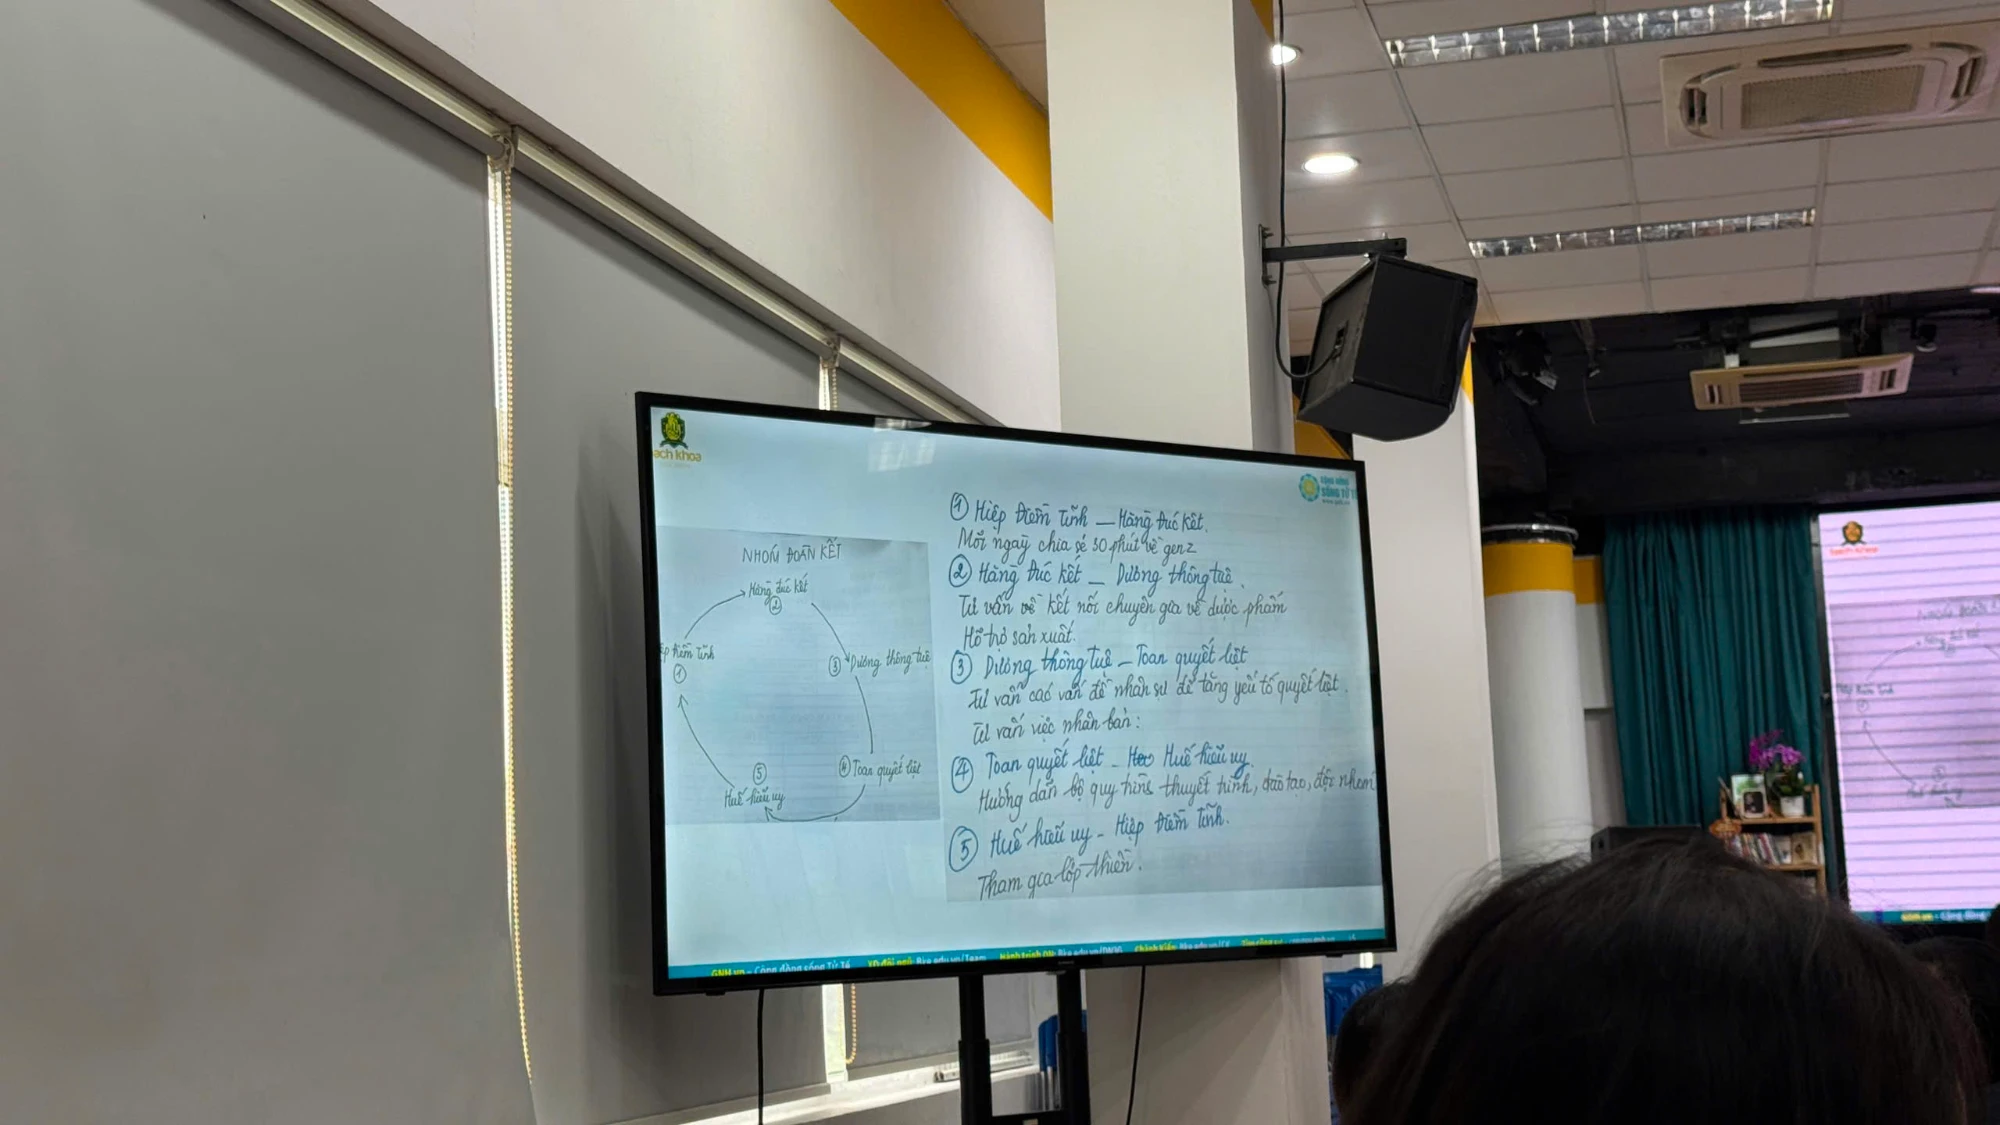 ach khoa
CỘNG ĐỒNG
SỐNG TỬ T
NHÓM ĐOÀN KẾT
Hằng đúc kết
②
ệp điềm tĩnh
①
③ Dương thông tuệ
④ Toan quyết liệt
⑤
Huế hiểu uy
① Hiệp điềm tĩnh – Hằng đúc kết.
Mỗi ngày chia sẻ 30 phút về gen z
② Hằng đúc kết – Dương thông tuệ.
Tư vấn về kết nối chuyên gia về dược phẩm
Hỗ trợ sản xuất.
③ Dương thông tuệ – Toan quyết liệt
Tư vấn các vấn đề nhân sự để tăng yếu tố quyết liệt.
Tư vấn việc nhân bản:
④ Toan quyết liệt – Huế hiểu uy.
Hướng dẫn bộ quy trình thuyết trình, đào tạo, đội nhóm
⑤ Huế hiểu uy – Hiệp điềm tĩnh.
Tham gia lớp thiền.
GNH.vn – Cộng đồng sống Tử Tế
XD đội ngũ: Bke.edu.vn/Team